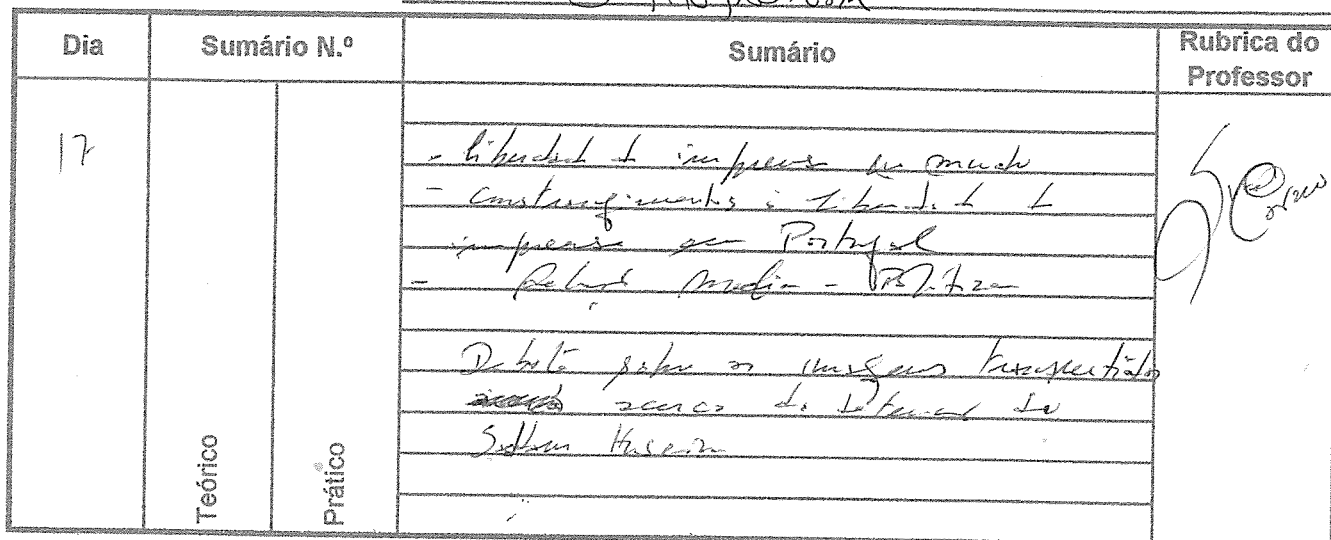 Dia Sumário N.º Sumário Rubrica do Professor
Teórico Prático
17
- liberdade de imprensa no mundo
- constrangimentos à liberdade de
imprensa em Portugal
- Relação media - Política
Debate sobre as imagens transmitidas
acerca da detenção de
Saddam Hussein